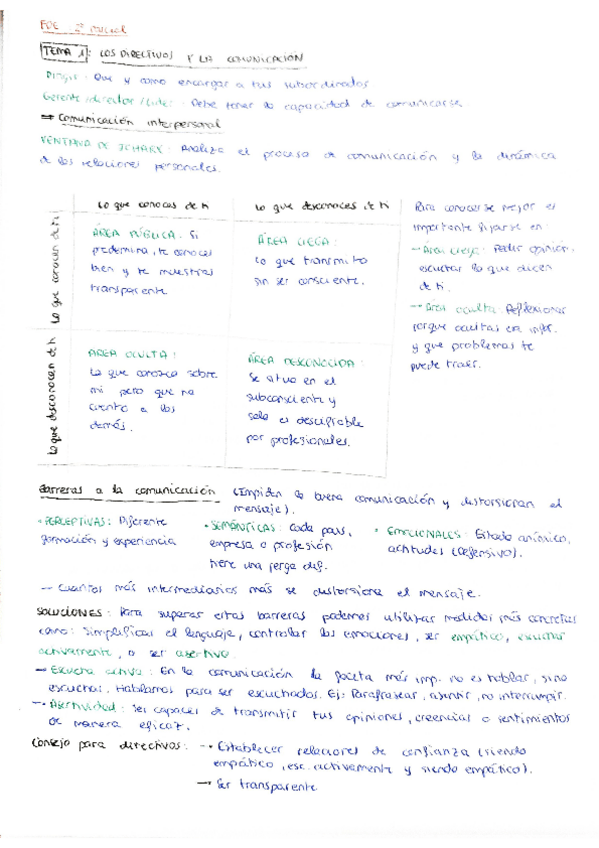 FOE 2º Parcial
TEMA 1: LOS DIRECTIVOS Y LA COMUNICACIÓN
Dirigir: Que y como encargar a tus subordinados
Gerente/director/líder: Debe tener la capacidad de comunicarse.
→ Comunicación interpersonal
VENTANA DE JOHARI: Analiza el proceso de comunicación y la dinámica
de las relaciones personales.
Lo que conoces de ti
Lo que desconoces de ti
Lo que conocen de ti
ÁREA PÚBLICA: Si
predomina, te conoces
bien y te muestras
transparente
ÁREA CIEGA:
Lo que transmito
sin ser consciente.
Lo que desconocen de ti
ÁREA OCULTA:
Lo que conozco sobre
mi pero que no
cuento a los
demás.
ÁREA DESCONOCIDA:
Se situa en el
subconsciente y
solo es descifrable
por profesionales.
Para conocerse mejor es
importante fijarse en:
→ Área ciega: Pedir opinión,
escuchar lo que dicen
de ti.
→ Área oculta: Reflexionar
porque ocultas esa infor.
y que problemas te
puede traer.
Barreras a la comunicación (Impiden la buena comunicación y distorsionan el
mensaje).
• PERCEPTIVAS: Diferente
formación y experiencia
• SEMÁNTICAS: Cada país,
empresa o profesión
tiene una jerga dif.
• EMOCIONALES: Estado anímico,
actitudes (defensivo).
- Cuantos más intermediarios más se distorsiona el mensaje.
SOLUCIONES: Para superar estas barreras podemos utilizar medidas más concretas
como: Simplificar el lenguaje, controlar las emociones, ser empático, escuchar
activamente, o ser asertivo.
→ Escucha activa: En la comunicación la faceta más imp. no es hablar, sino
escuchar. Hablamos para ser escuchados. Ej: Parafrasear, asentir, no interrumpir.
→ Asertividad: Ser capaces de transmitir tus opiniones, creencias o sentimientos
de manera eficaz.
Consejo para directivos: → Establecer relaciones de confianza (siendo
empático, esc. activamente y siendo empático).
→ Ser transparente